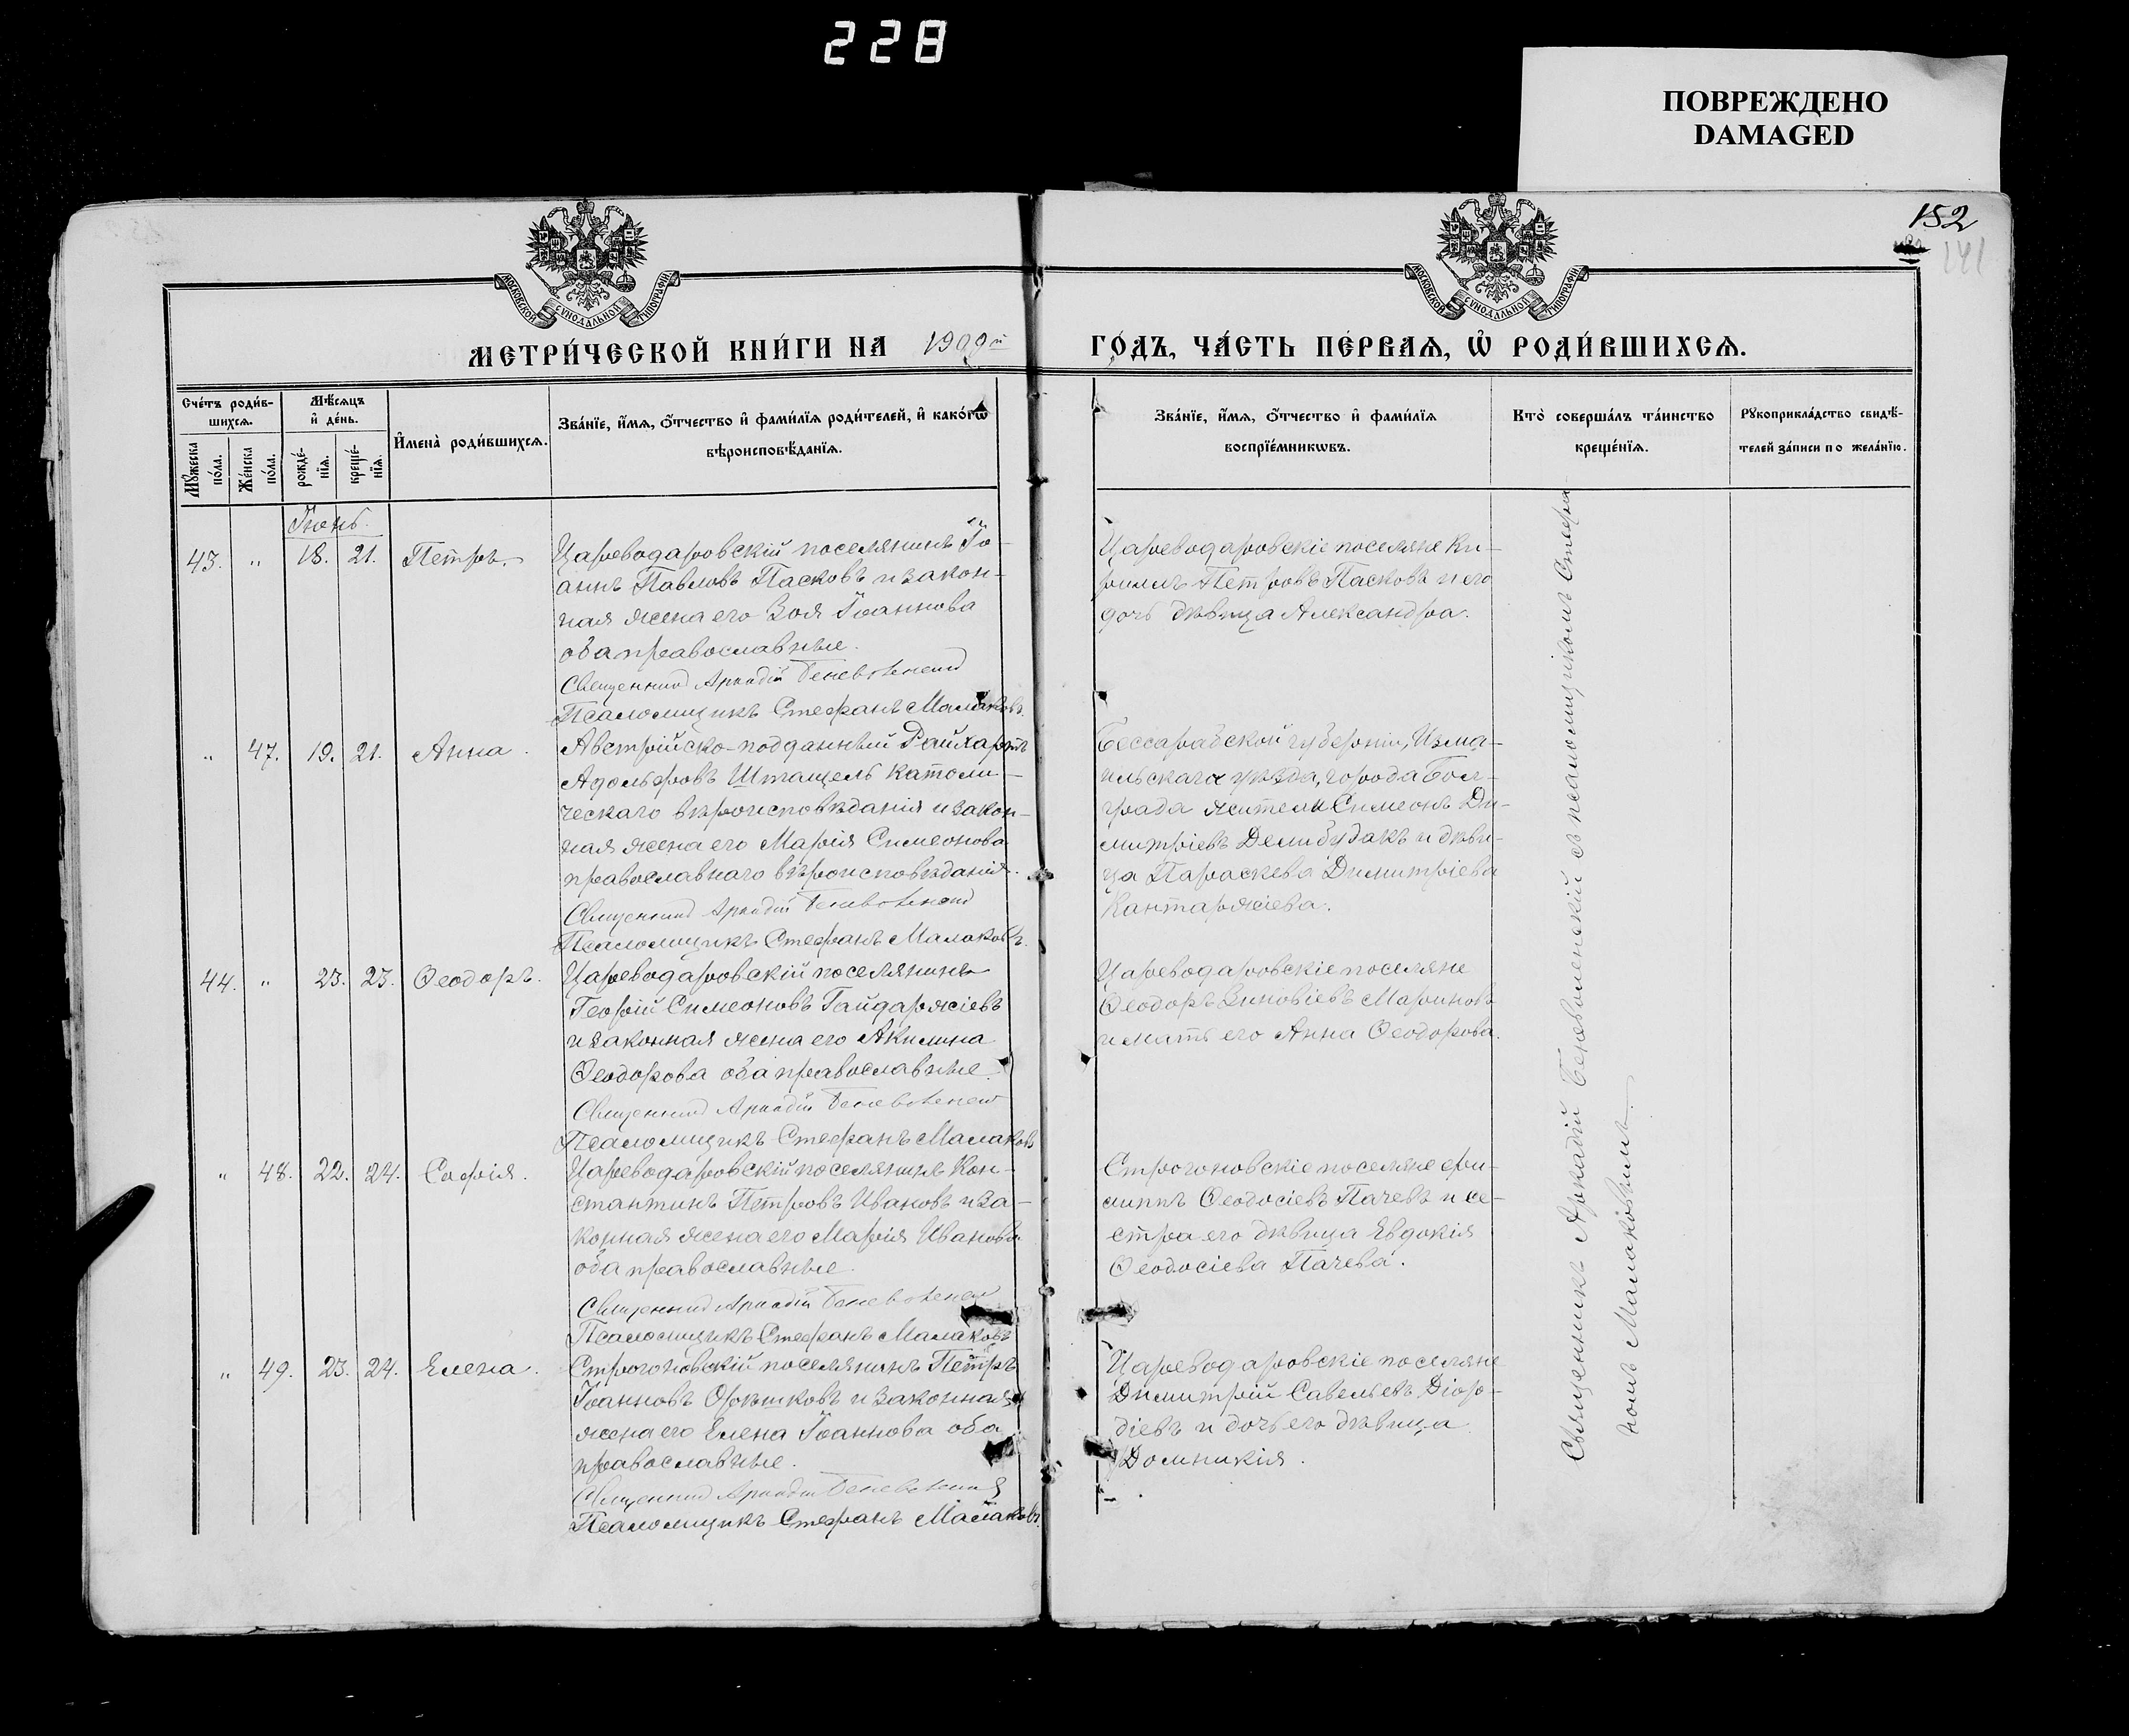 228
ПОВРЕЖДЕНО
DAMAGED
152
141
МОСКОВСКОЙ СУНОДАЛЬНОЙ ТИПОГРАФІИ
МОСКОВСКОЙ СУНОДАЛЬНОЙ ТИПОГРАФІИ
МЕТРИ́ЧЕСКОЙ КНИ́ГИ НА 1909й ГО́ДЪ, ЧА́СТЬ ПЕ́РВАѦ, Ѡ҆ РОДИ́ВШИХСѦ.
Сче́тъ роди́вшихсѧ.
Мꙋ́жеска по́ла.
Же́нска по́ла.
Мѣ́сѧцъ и҆ де́нь.
рожде́нїѧ.
креще́нїѧ.
И҆мена̀ роди́вшихсѧ.
Зва́нїе, и҆́мѧ, ѻ҆́тчество и҆ фами́лїѧ роди́телей, и҆ како́гѡ
вѣроисповѣ́данїѧ.
Зва́нїе, и҆́мѧ, ѻ҆́тчество и҆ фами́лїѧ
воспрїе́мникѡвъ.
Кто̀ соверша́лъ та́инство
креще́нїѧ.
Рꙋкоприкла́дство свидѣ́-
телей за́писи по жела́нїю.
Іюнь.
43. " 18. 21. Петръ.
Цареводаровскій поселянинъ Іо-
аннъ Павловъ Пасковъ и закон-
ная жена его Зоя Іоаннова
оба православные.
Священникъ Аркадій
Псаломщикъ Стефанъ Малаковъ.
Цареводаровскіе поселяне Ки-
риллъ Петровъ Пасковъ и его
дочь дѣвица Александра.
" 47. 19. 21. Анна.
Австрійско-подданный Райхартъ
Адольфовъ Штащель католи-
ческаго вѣроисповѣданія и закон-
ная жена его Марія Симеонова
православнаго вѣроисповѣданія.
Священникъ Аркадій
Псаломщикъ Стефанъ Малаковъ.
Бессарабской губерніи, Изма-
ильскаго уѣзда, города Бол-
града жители Симеонъ Ди-
митріевъ Демибудакъ и дѣви-
ца Параскева Димитріева
Кантаржіева.
44. " 23. 23. Ѳеодоръ.
Цареводаровскій поселянинъ
Георгій Симеоновъ Гайдаржіевъ
и законная жена его Акилина
Ѳеодорова оба православные.
Священникъ Аркадій
Псаломщикъ Стефанъ Малаковъ
Цареводаровскіе поселяне
Ѳеодоръ Зиновіевъ Мариновъ
и мать его Анна Ѳеодорова.
" 48. 22. 24. Софія.
Цареводаровскій поселянинъ Кон-
стантинъ Петровъ Ивановъ и за-
конная жена его Марія Иванова
оба православные.
Священникъ Аркадій
Псаломщикъ Стефанъ Малаковъ
Строгоновскіе поселяне Фи-
липпъ Ѳеодосіевъ Пачевъ и се-
стра его дѣвица Евдокія
Ѳеодосіева Пачева.
" 49. 23. 24. Елена.
Строгоновскій поселянинъ Петръ
Іоанновъ Орѣшковъ и законная
жена его Елена Іоаннова оба
православные.
Священникъ Аркадій
Псаломщикъ Стефанъ Малаковъ.
Цареводаровскіе поселяне
Димитрій Савельевъ Діор-
діевъ и дочь его дѣвица
Домникія.
Священникъ Аркадій Беневоленскій съ псаломщикомъ Стефа-
номъ Малаковымъ.